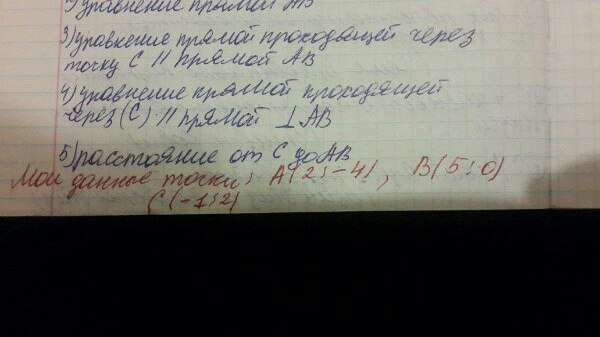 уравнение прямой АВ
3) уравнение прямой проходящей через
точку С // прямой АВ
4) уравнение прямой проходящей
через (С) // прямой ⊥ АВ
5) расстояние от С до АВ
Мои данные точки: А(2;-4), В(5;0)
С(-1;2)